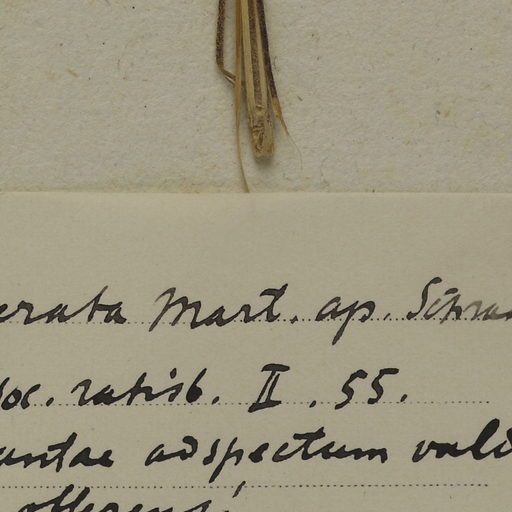 erata Mart. ap. Schra
oc. ratisb. II. 55.
antae adspectum vald
offerens!